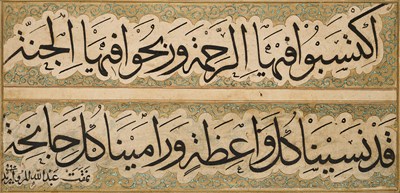 اكتسبوا فيها الرحمة وربحوا فيها الجنة
قد نسينا كل واعظة ورامينا كل جائحة
عبد الله المرواريد